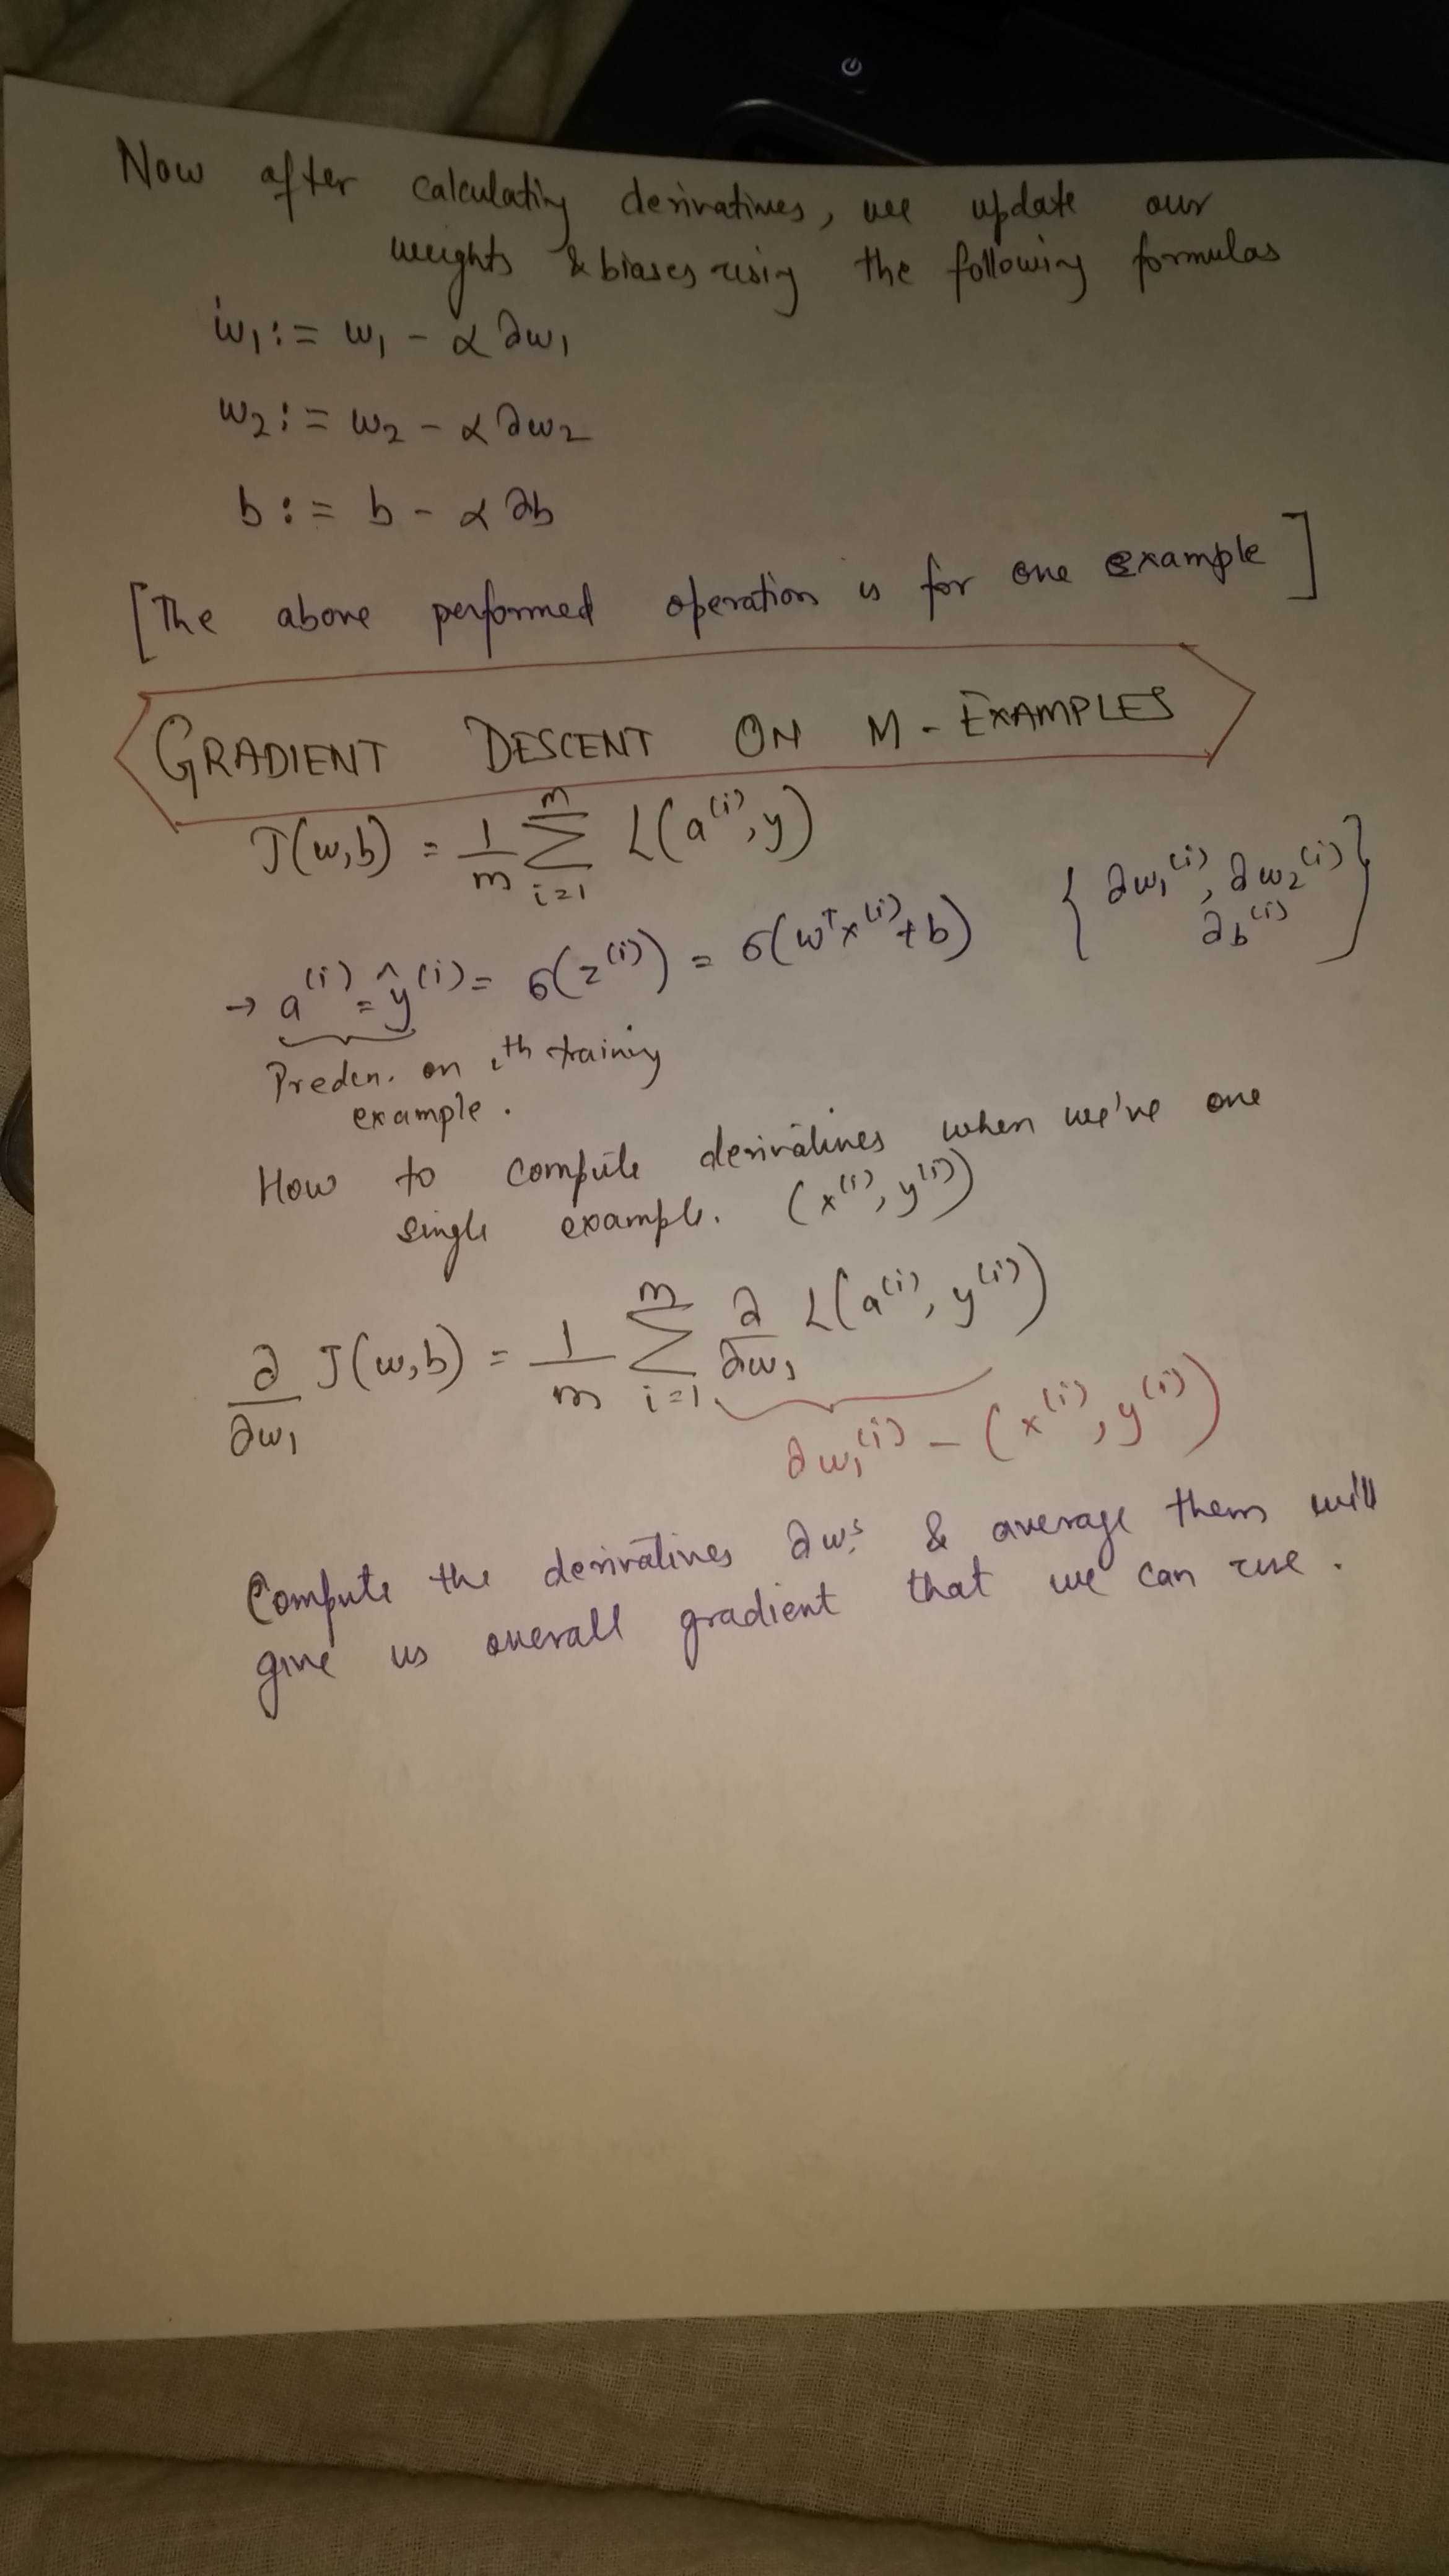 Now after calculating derivatives, we update our
weights & biases using the following formulas
w₁ := w₁ - α ∂w₁
w₂ := w₂ - α ∂w₂
b := b - α ∂b
[The above performed operation is for one example]
GRADIENT DESCENT ON M - EXAMPLES
J(w,b) = 1/m Σ_{i=1}^{m} L(a⁽ⁱ⁾, y)
→ a⁽ⁱ⁾ = ŷ⁽ⁱ⁾ = σ(z⁽ⁱ⁾) = σ(wᵀx⁽ⁱ⁾ + b) { ∂w₁⁽ⁱ⁾, ∂w₂⁽ⁱ⁾
∂b⁽ⁱ⁾ }
Predcn. on iᵗʰ training
example.
How to compute derivatives when we've one
single example. (x⁽ⁱ⁾, y⁽ⁱ⁾)
∂/∂w₁ J(w,b) = 1/m Σ_{i=1}^{m} ∂/∂w₁ L(a⁽ⁱ⁾, y⁽ⁱ⁾)
∂w₁⁽ⁱ⁾ - (x⁽ⁱ⁾, y⁽ⁱ⁾)
Compute the derivatives ∂wˢ & average them will
give us overall gradient that we can use.